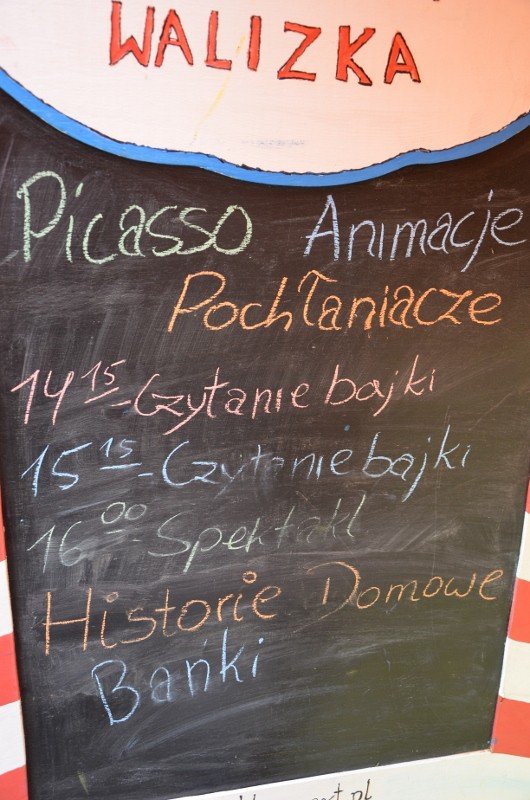 WALIZKA
Picasso Animacje
Pochłaniacze
14 15 - Czytanie bajki
15 15 - Czytanie bajki
16 00 - Spektakl
Historie Domowe
Bańki